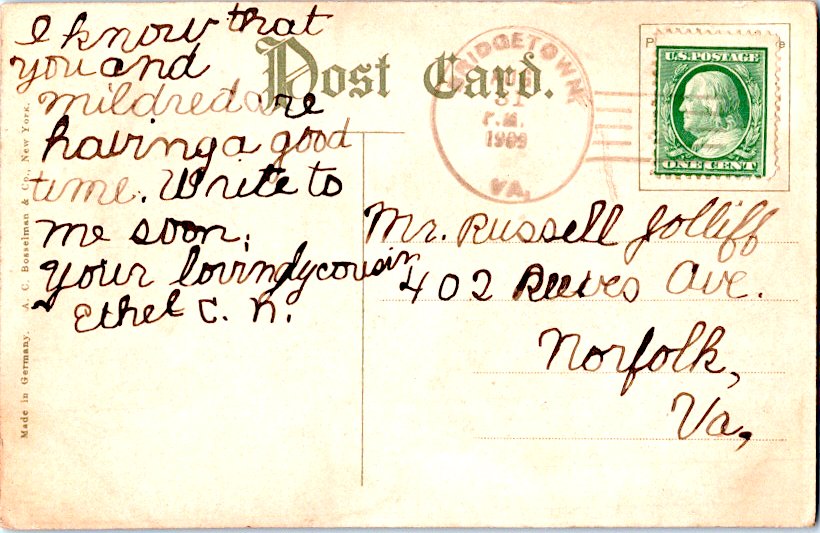 I know that
you and
mildred are
having a good
time. Write to
me soon.
your lovindy cousin
Ethel C. N.
Post Card.
BRIDGETOWN
31
P.M.
1909
VA.
U.S. POSTAGE
ONE CENT
Mr. Russell Jolliff
402 Reeves Ave.
Norfolk,
Va.
Made in Germany. A. C. Bosselman & Co., New York.